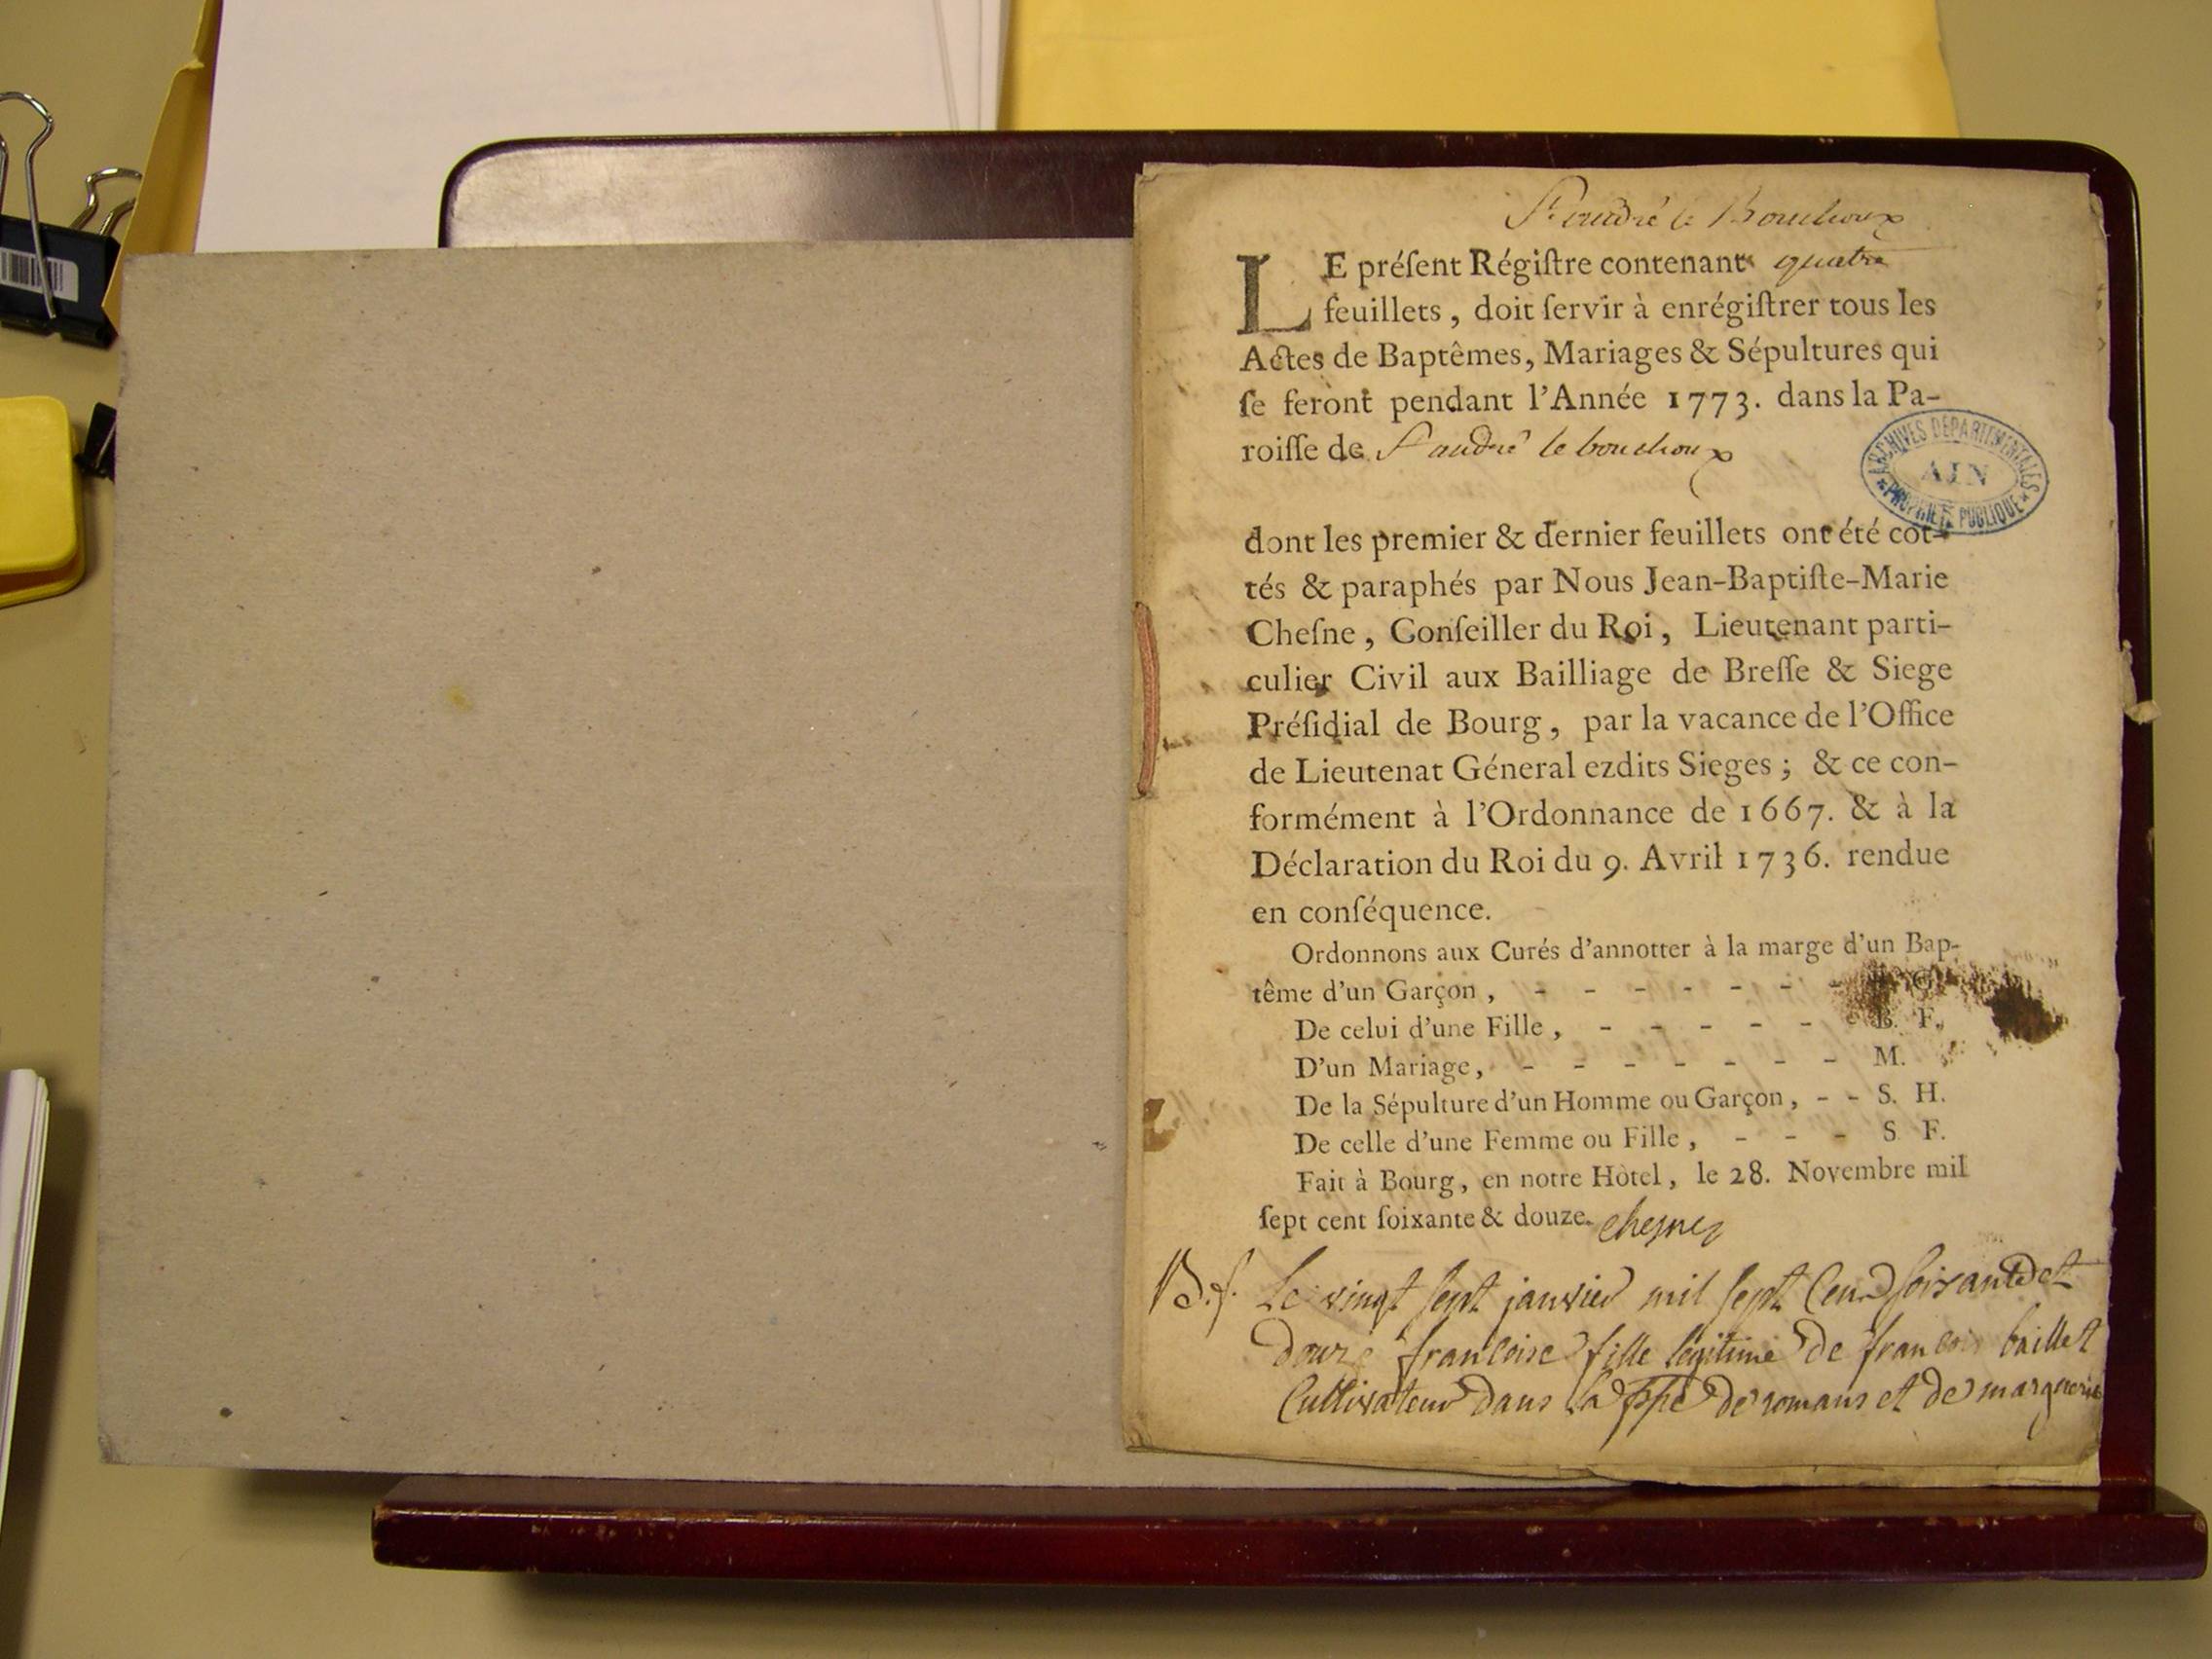 St andré le Bouchoux
LE préſent Régiſtre contenant quatre
feuillets, doit ſervir à enrégiſtrer tous les
Actes de Baptêmes, Mariages & Sépultures qui
ſe feront pendant l'Année 1773. dans la Pa-
roiſſe de St andré le bouchoux
ARCHIVES DÉPARTEMENTALES
AIN
PROPRIÉTÉ PUBLIQUE
dont les premier & dernier feuillets ont été cot-
tés & paraphés par Nous Jean-Baptiſte-Marie
Cheſne, Conſeiller du Roi, Lieutenant parti-
culier Civil aux Bailliage de Breſſe & Siege
Préſidial de Bourg, par la vacance de l'Office
de Lieutenat Géneral ezdits Sieges; & ce con-
formément à l'Ordonnance de 1667. & à la
Déclaration du Roi du 9. Avril 1736. rendue
en conſéquence.
Ordonnons aux Curés d'annotter à la marge d'un Bap-
tême d'un Garçon, - - - - - - - G.
De celui d'une Fille, - - - - - - B. F.
D'un Mariage, - - - - - - - M.
De la Sépulture d'un Homme ou Garçon, - - S. H.
De celle d'une Femme ou Fille, - - - S. F.
Fait à Bourg, en notre Hôtel, le 28. Novembre mil
ſept cent ſoixante & douze. chesne
B.f. Le vingt sept janvier mil sept Cent soixante et
douze francoise fille légitime de francois baillet
Cultivateur dans la ppe de romans et de marguerite